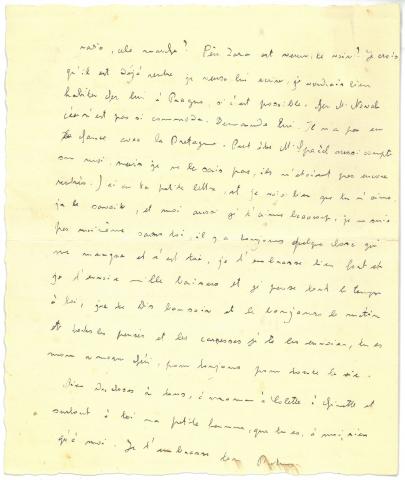 cela marche? Père Zara est venu, te voir? Je crois
qu'il est déjà rentré je veux lui écrire, je voudrais bien
habiter chez lui à Prague, si c'est possible. chez M.
n'est pas si commode. Demande lui. Il n'a pas eu
de chance avec la Bretagne. Peut être M. aussi compte
sur moi, mais je ne le sais pas, ils n'étaient pas encore
rentrés. J'ai eu ta petite lettre, et je vois bien que tu m'aimes
je le savais, et moi aussi je t'aime beaucoup, je ne suis
pas moi même sans toi, il y a toujours quelque chose qui
me manque et c'est toi, je t'embrasse bien fort et
je t'envoie mille baisers et je pense tout le temps
à toi, je te dis bonsoir et le bonjour le matin
et toutes les pensées et les caresses je te les envoie, tu es
mon amour chéri, pour toujours pour toute la vie.
Bien des choses à tous, à maman à Colette à Ginette et
surtout à toi ma petite femme, que tu es, à moi, rien
qu'à moi. Je t'embrasse ton